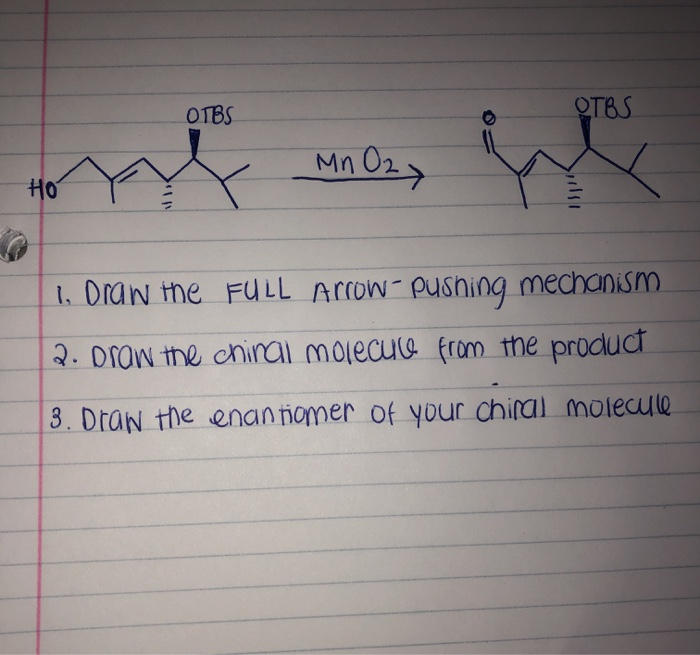 OTBS
OTBS
O
HO
MnO2
1. Draw the FULL Arrow-pushing mechanism
2. Draw the chiral molecule from the product
3. Draw the enantiomer of your chiral molecule